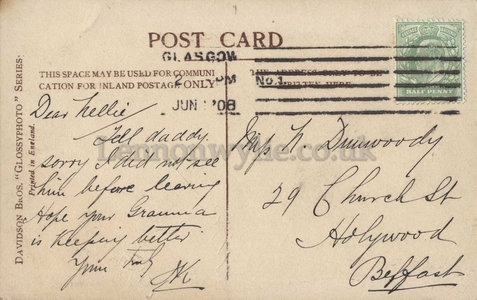 POST CARD
GLASGOW
2 PM
JUN 1 '08
No. 1
THIS SPACE MAY BE USED FOR COMMUNI
CATION FOR INLAND POSTAGE ONLY
THE ADDRESS ONLY TO BE
WRITTEN HERE
HALF PENNY
DAVIDSON BROS. "GLOSSYPHOTO" SERIES.
Printed in England.
Dear Nellie
Tell daddy
sorry I did not see
him before leaving
Hope your Granma
is keeping better
Yours truly
JK
N. Dunwoody
29 Church St
Holywood
Belfast
Lennonwylie.co.uk